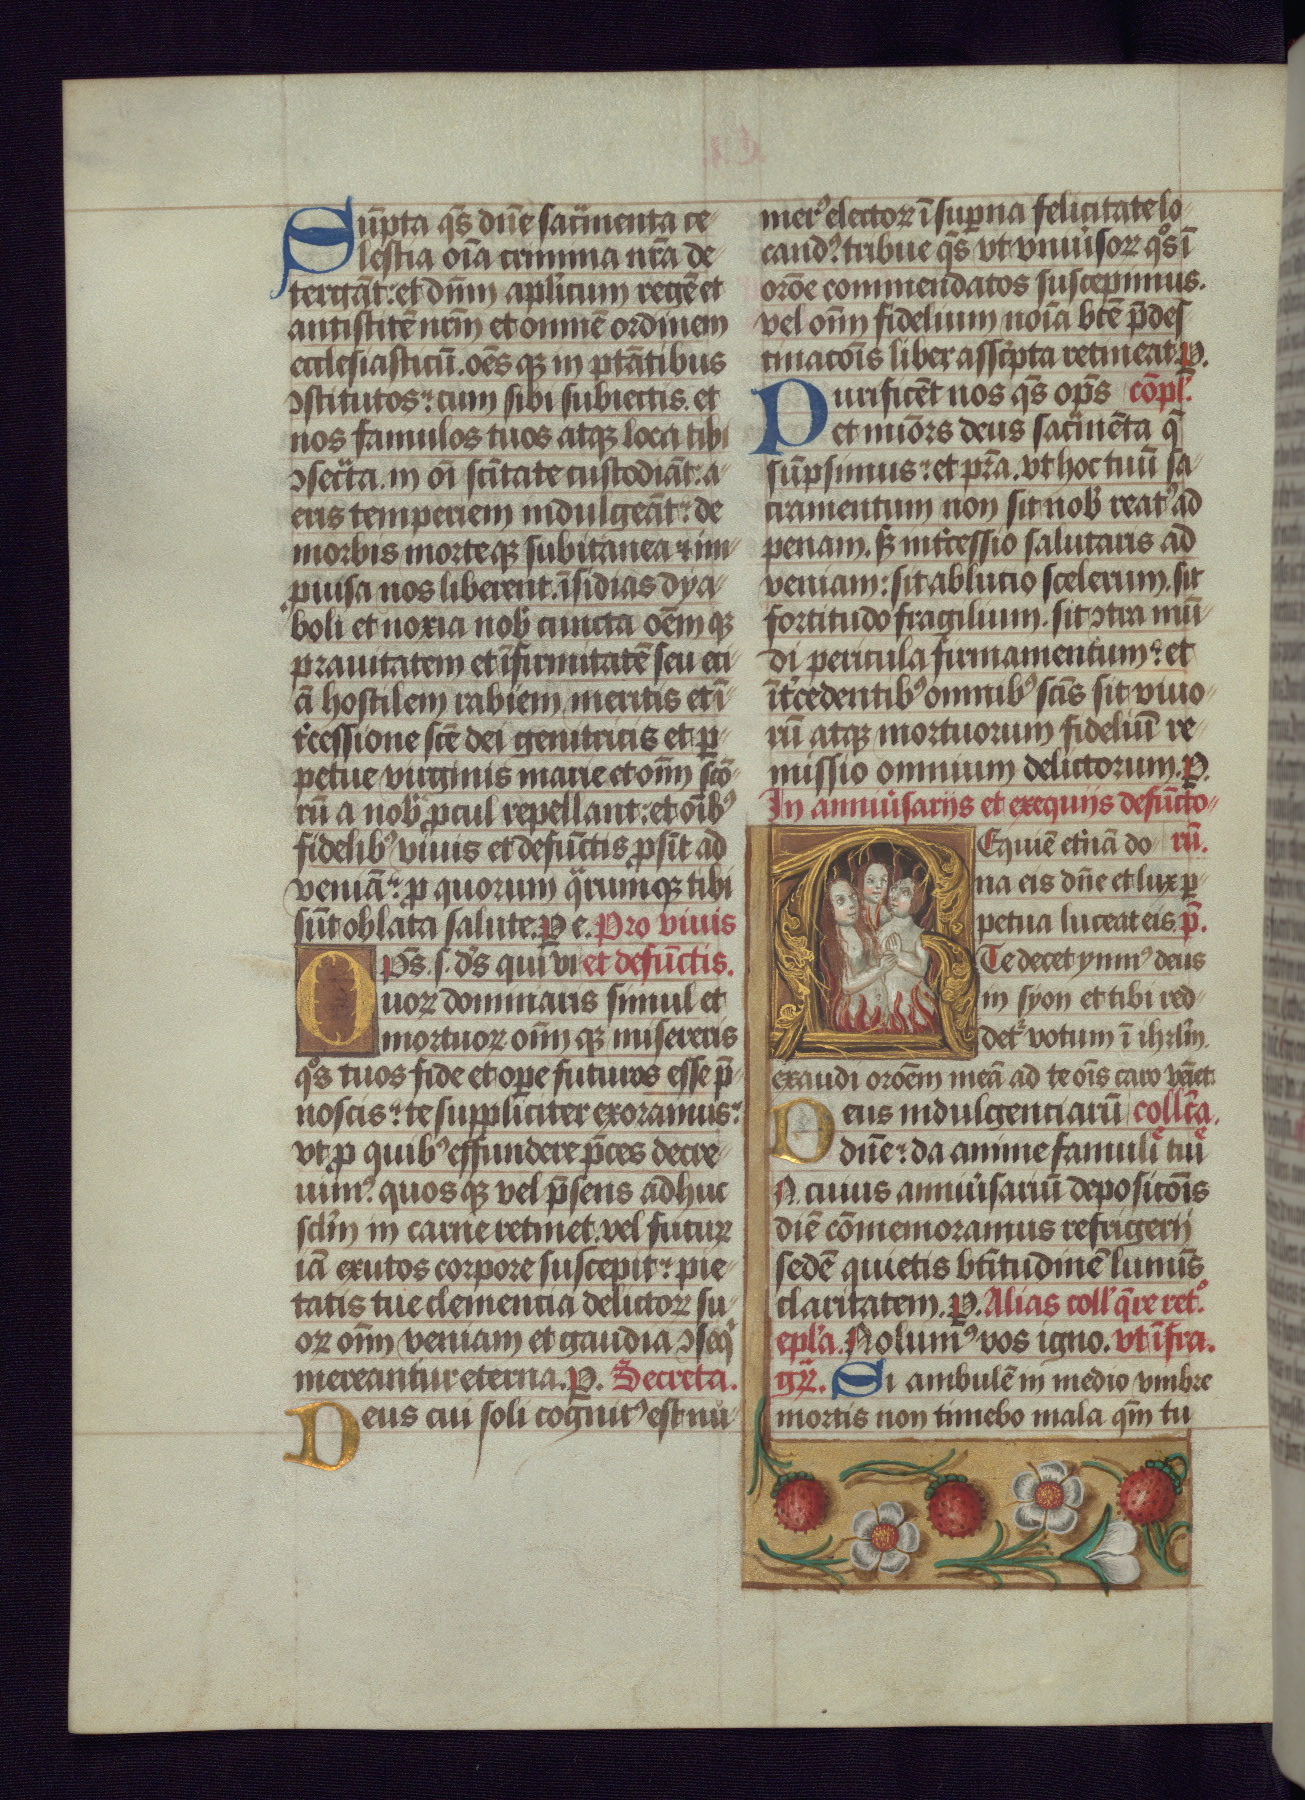 Sūpta qs̄ dn̄e sac̄menta ce-
lestia oīa crimina nr̄a de-
tergāt: et dn̄m aplicum regē et
antistitē nrm̄ et omnē ordinem
ecclesiasticū. oēs qꝫ in ptātibus
ꝯstitutos: cum sibi subiectis. et
nos famulos tuos atqꝫ loca tibi
ꝯsecta. in oī scītate custodiāt: a-
eris temperiem indulgeāt: de
morbis morteqꝫ subitanea ⁊ im-
ꝓuisa nos liberent. īsidias dya-
boli et noxia nob̄ cuncta oēm qꝫ
prauitatem et īfirmitatē seu eci-
ā hostilem rabiem meritis et ī-
tc̄essione scē dei genitricis et ꝑ-
petue virginis marie et oīm scō-
rū a nob̄ ꝓcul repellant: et oībꝰ
fidelibꝰ viuis et defūctis ꝓsīt ad
veniā: ꝓ quorum qr̄umqꝫ tibi
sūt oblata salute. P e. Pro viuis
OPs̄. s. ds̄ qui vi et defūctis.
uoꝝ dominaris simul et
mortuoꝝ oīm qꝫ misereris
qͦs tuos fide et oꝑe futuros esse p̄-
noscis: te suppliciter exoramus:
vt ꝓ quibꝰ effundere p̄ces decre-
uimꝰ. quos qꝫ vel p̄sens adhuc
sclm̄ in carne retinet. vel futuꝝ
iā exutos corpore suscepit: pie-
tatis tue clemencia delictoꝝ su-
oꝝ oīm veniam et gaudia ꝯseqͥ
mereantur eterna. P. Secreta.
Deus cui soli cognitꝰ est nu-
merꝰ electoꝝ ī suꝑna felicitate lo-
candꝰ: tribue qs̄ vt vniūsoꝝ qͦs ī
orōe commendatos suscepimus.
vel oīm fidelium noīa btē p̄des-
tinacōis liber assc̄pta retineat. P.
Purificēt nos qs̄ ops̄ cōpl̄.
et mīors deus sac̄mēta q̄
sūpsimus: et pr̄a. vt hoc tuū sa-
cramentum non sit nob̄ reatꝰ ad
penam. sꝫ intc̄essio salutaris ad
veniam: sit ablucio scelerum. sit
fortitudo fragilium. sit ꝯtra mū-
di pericula firmamentum: et
ītc̄edentibꝰ omnibꝰ scīs sit viuo-
rū atqꝫ mortuorum fideliū re-
missio omnium delictorum. P.
In anniūsariis et exequiis defūcto-
REquiē etnā do- rū.
na eis dn̄e et lux ꝑ-
petua luceat eis. p̄.
Te decet ymnꝰ deus
in syon et tibi red-
det᷑ votum ī ihrlm̄.
exaudi oroēm meā ad te oīs caro vēiet.
Deus indulgentiarū coll̄ta.
dn̄e: da anime famuli tui
N. cuius anniūsariū deposicōis
diē cōmemoramus refrigerii
sedē quietis btītudinē luminis
claritatem. P. Alias coll̄ q̄re retꝰ.
epl̄a. Nolumꝰ vos igno. vt īfra.
gꝝ. Si ambulē in medio vmbre
mortis non timebo mala qm̄ tu